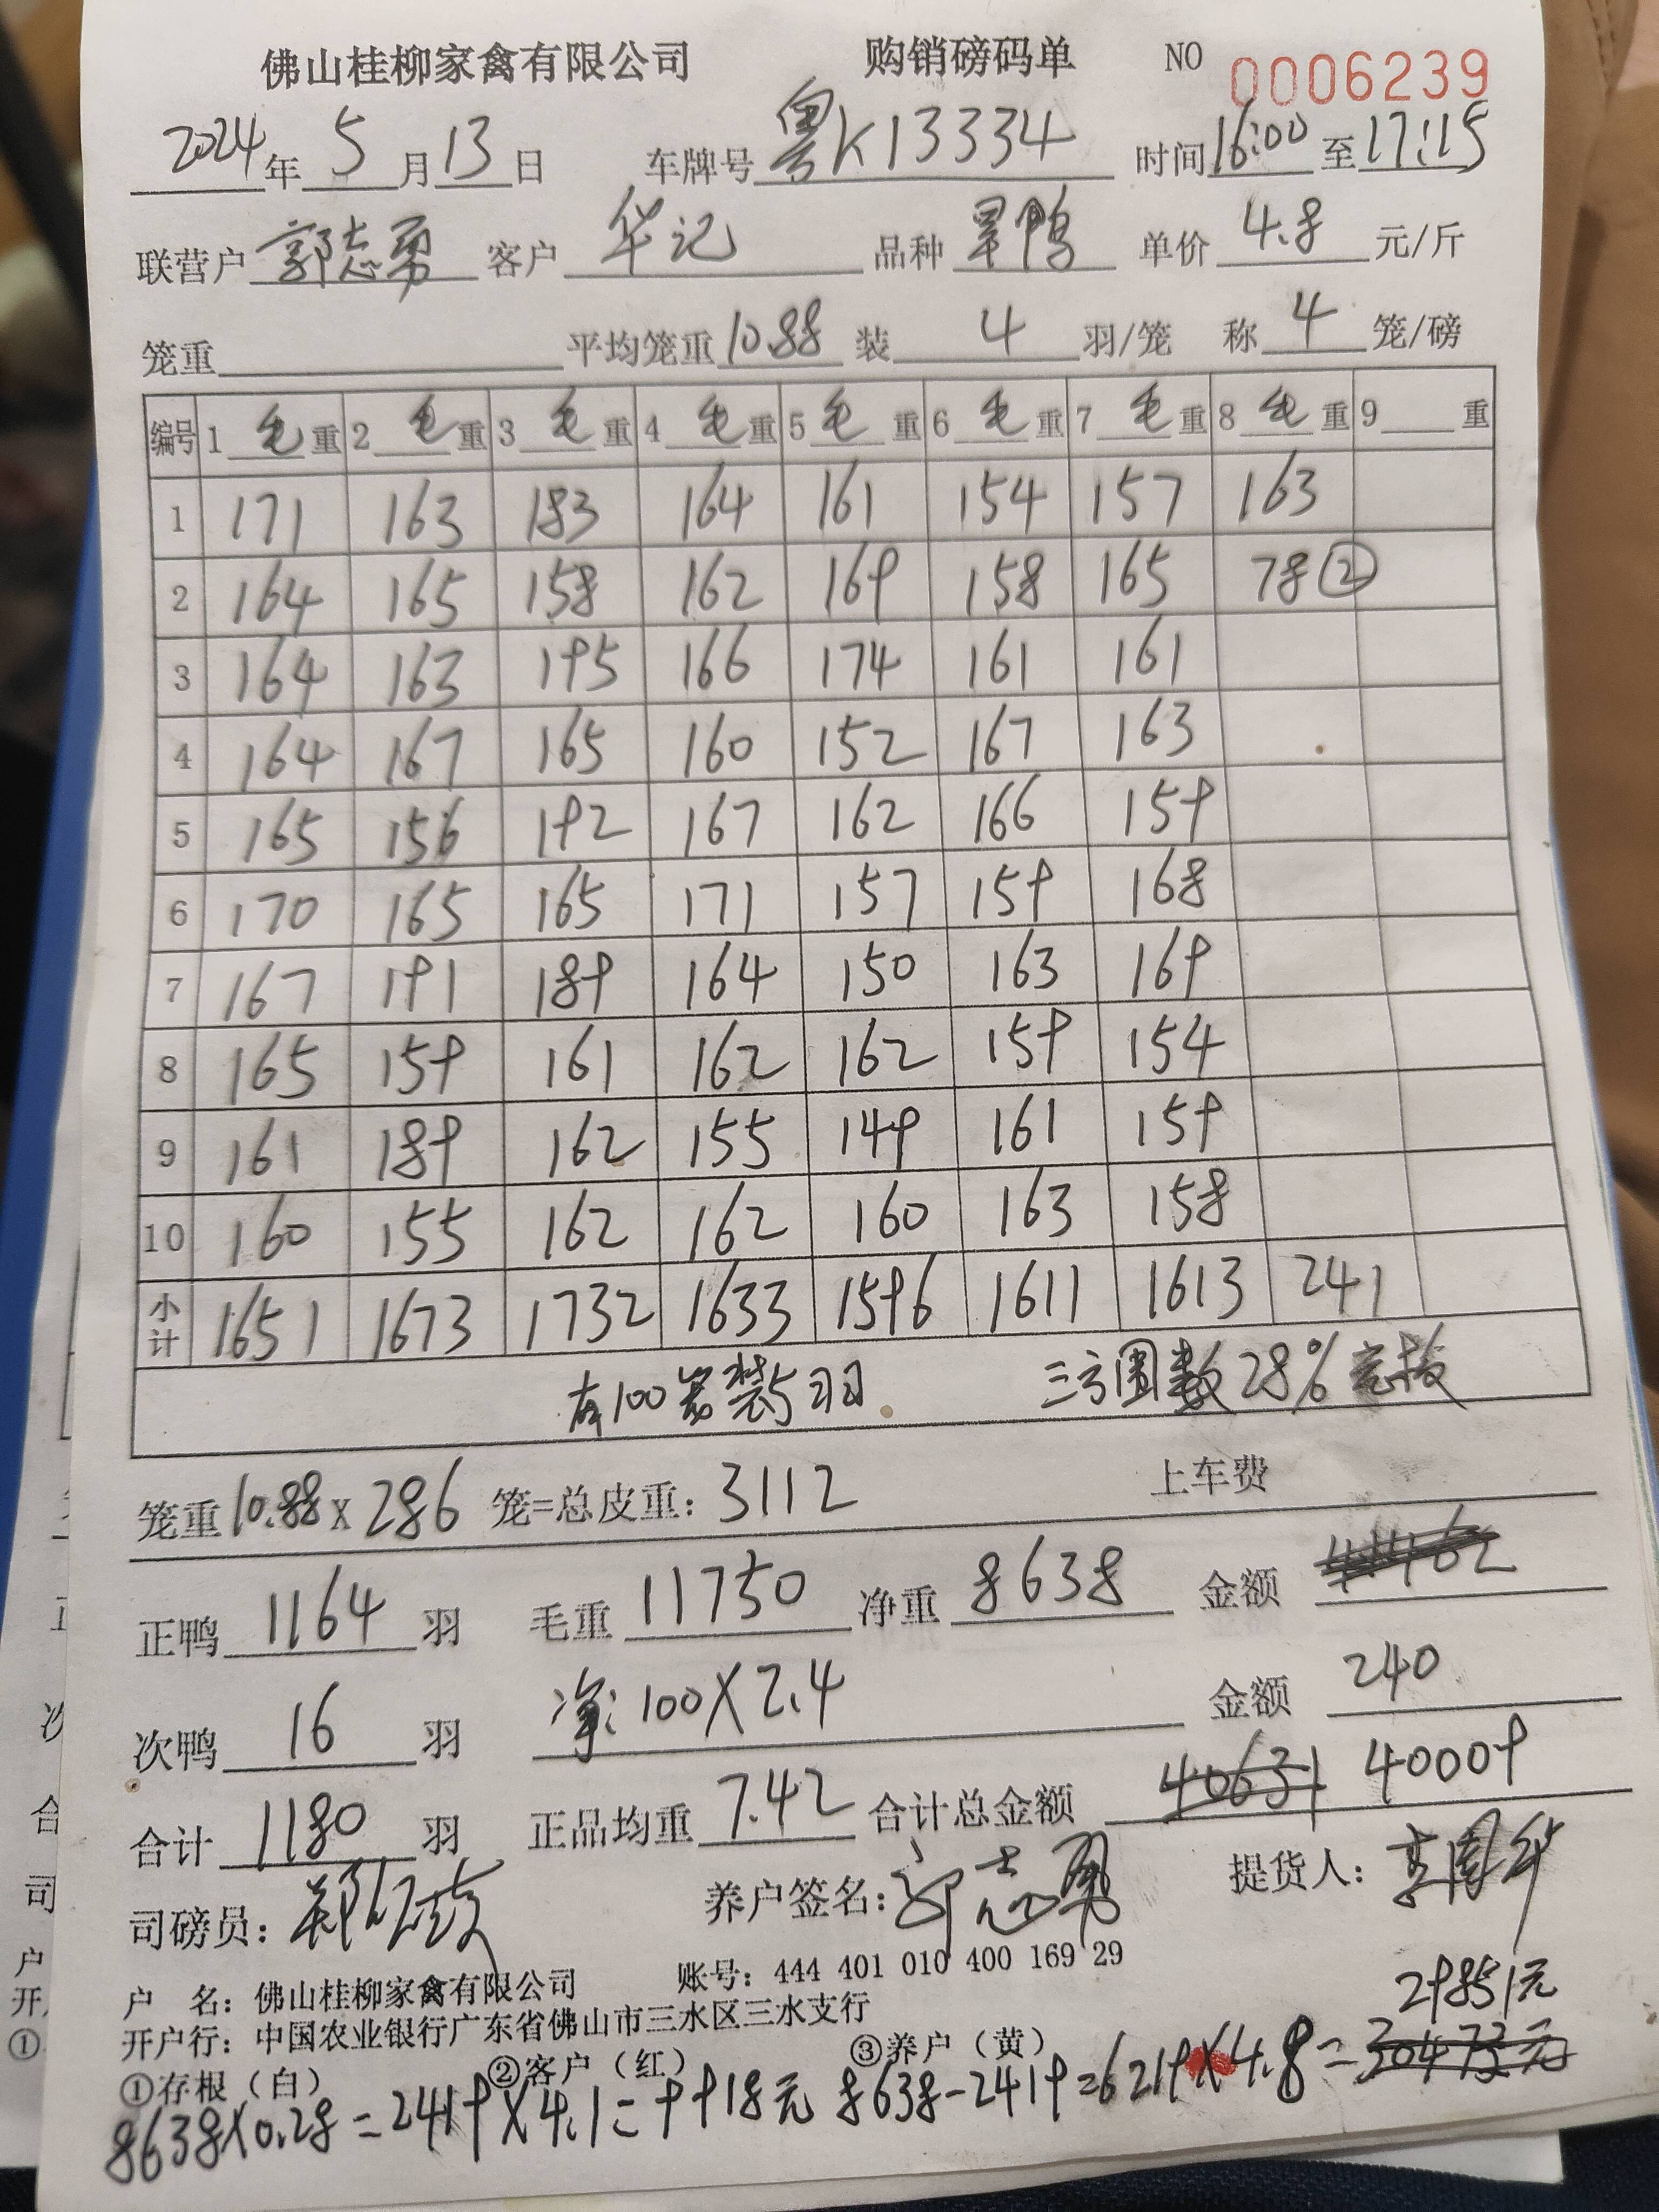 佛山桂柳家禽有限公司 购销磅码单 NO 0006239
2024年 5 月 13 日 车牌号 粤K13334 时间 16:00 至 17:15
联营户 郭志勇 客户 华记 品种 旱鸭 单价 4.8 元/斤
笼重 平均笼重 10.88 装 4 羽/笼 称 4 笼/磅
编号 1 毛 重 2 毛 重 3 毛 重 4 毛 重 5 毛 重 6 毛 重 7 毛 重 8 毛 重 9 重
1 171 163 183 164 161 154 157 163
2 164 165 158 162 169 158 165 78②
3 164 163 195 166 174 161 161
4 164 167 165 160 152 167 163
5 165 156 192 167 162 166 159
6 170 165 165 171 157 159 168
7 167 191 189 164 150 163 169
8 165 159 161 162 162 159 154
9 161 189 162 155 149 161 159
10 160 155 162 162 160 163 158
小计 1651 1673 1732 1633 1596 1611 1613 241
有100 装5羽 三方圈数28%
笼重 10.88 X 286 笼=总皮重: 3112 上车费
正鸭 1164 羽 毛重 11750 净重 8638 金额
次鸭 16 羽 净: 100X2.4 金额 240
合计 1180 羽 正品均重 7.42 合计总金额 40631 40009
司磅员: 养户签名: 郭志勇 提货人:
户 名: 佛山桂柳家禽有限公司 账号: 444 401 010 400 169 29
开户行: 中国农业银行广东省佛山市三水区三水支行
29851元
①存根(白) ②客户(红) ③养户(黄)
8638X0.28=2419X4.1=9918元 8638-2419=6219X4.8=30473元